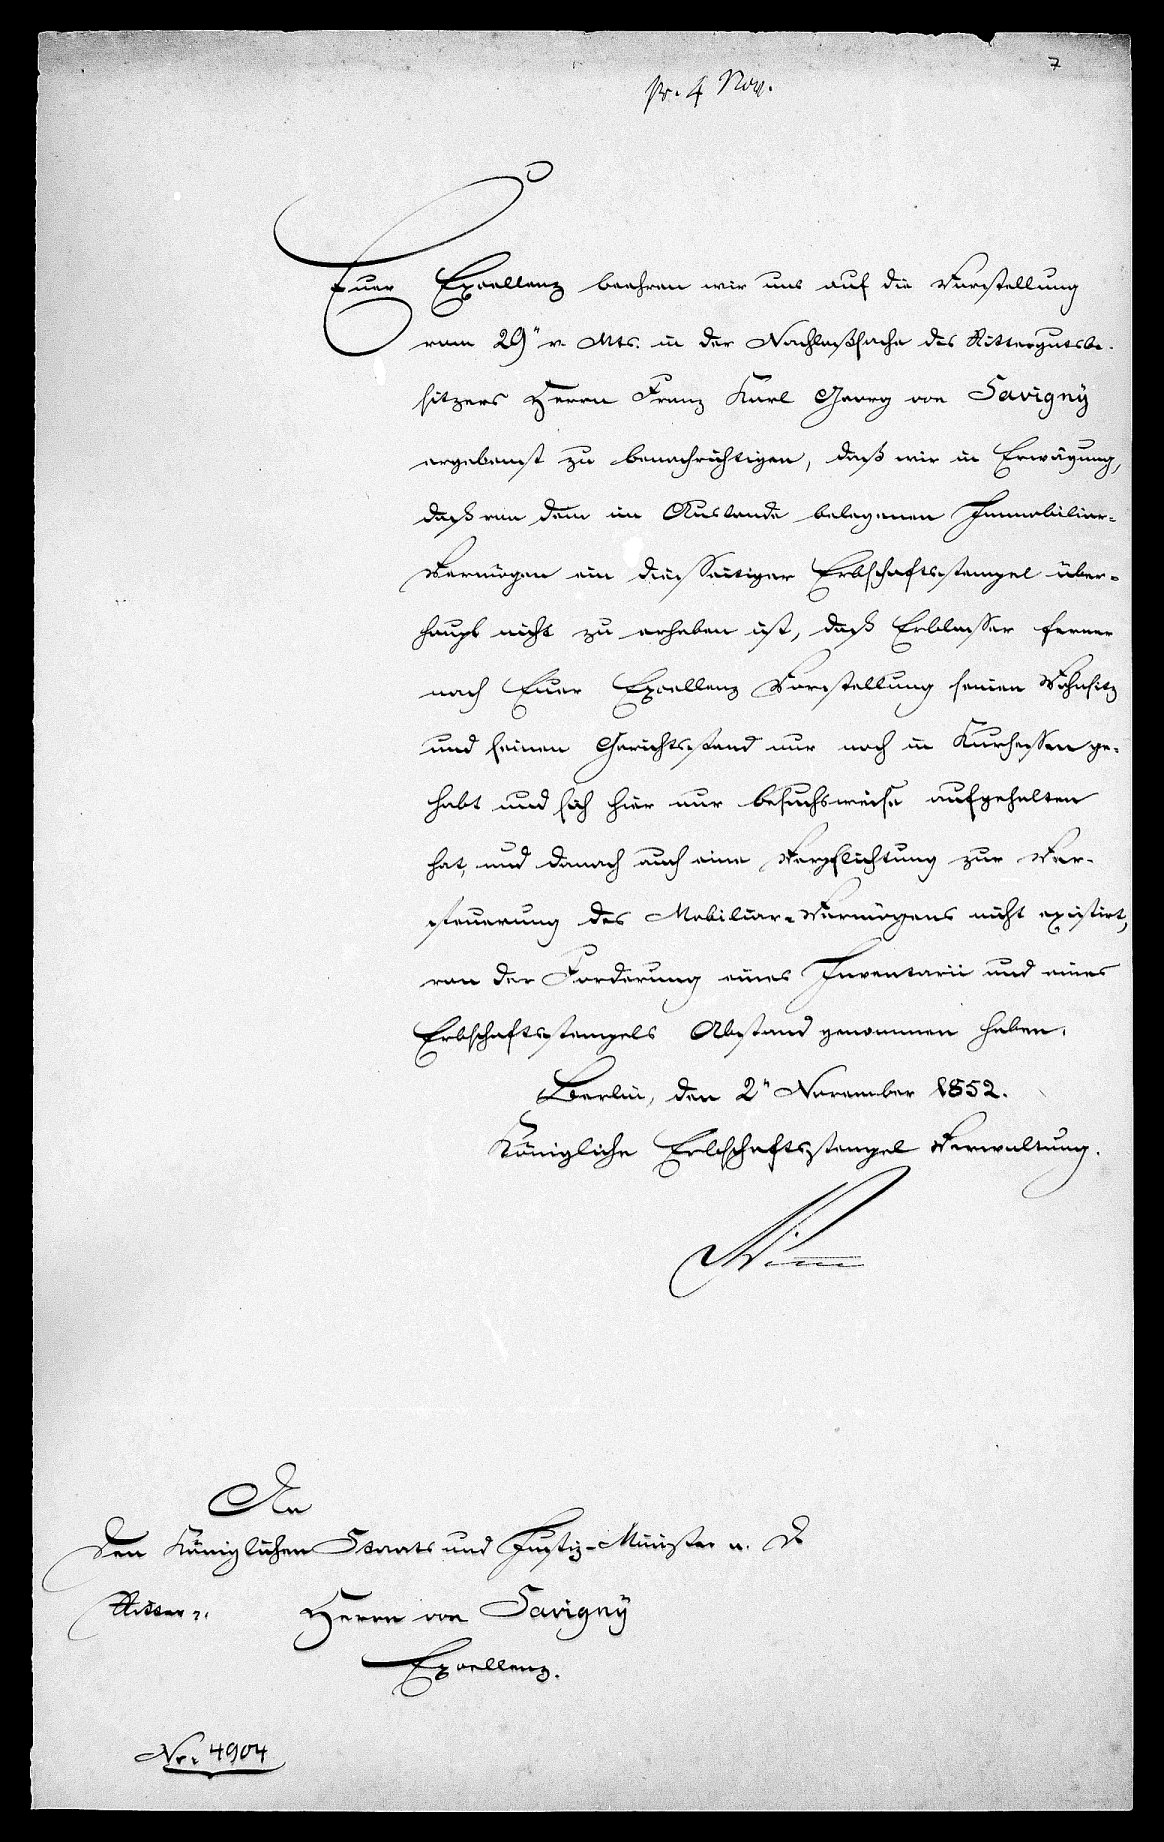 7
pr. 4 Nov.
Euer Excellenz beehren wir uns auf die Vorstellung
vom 29" v. Mts. in der Nachlaßsache des Rittergutsbe-
sitzers Herrn Franz Karl Georg von Savigny
ergebenst zu benachrichtigen, daß wir in Erwägung,
daß von dem im Auslande belegenen Immobiliar-
Vermögen ein diesseitiger Erbschaftsstempel über-
haupt nicht zu erheben ist, daß Erblasser ferner
nach Euer Excellenz Vorstellung seinen Wohnsitz
und seinen Gerichtsstand nur noch in Kurhessen ge-
habt und sich hier nur besuchsweise aufgehalten
hat, und danach auch eine Verpflichtung zur Ver-
steuerung des Mobiliar-Vermögens nicht existirt,
von der Forderung eines Inventarii und eines
Erbschaftsstempels Abstand genommen haben.
Berlin, den 2" November 1852.
Königliche Erbschaftsstempel Verwaltung.
An
den Königlichen Staats und Justiz-Minister a. D
Ritter
Herrn von Savigny
Excellenz.
No. 4904